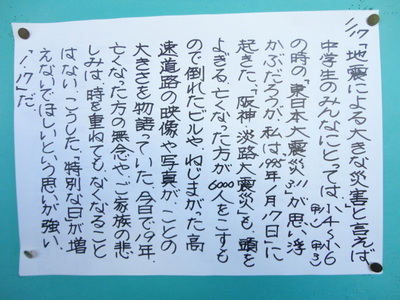 1/17「地震による大きな災害」と言えば
中学生のみんなにとっては、小4〜小6
の時の「東日本大震災」3.11が思い浮
かぶだろうが、私は'95年1月17日に
起きた、「阪神・淡路大震災」も、頭を
よぎる。亡くなった方が6000人をこすも
ので倒れたビルや、ねじまがった高
速道路の映像や写真が、ことの
大きさを物語っていた。今日で19年。
亡くなった方の無念や、ご家族の悲
しみは、時を重ねても、なくなること
はない。こうした、「特別な日」が増
えないでほしいという思いが強い、
「1/17」だ.